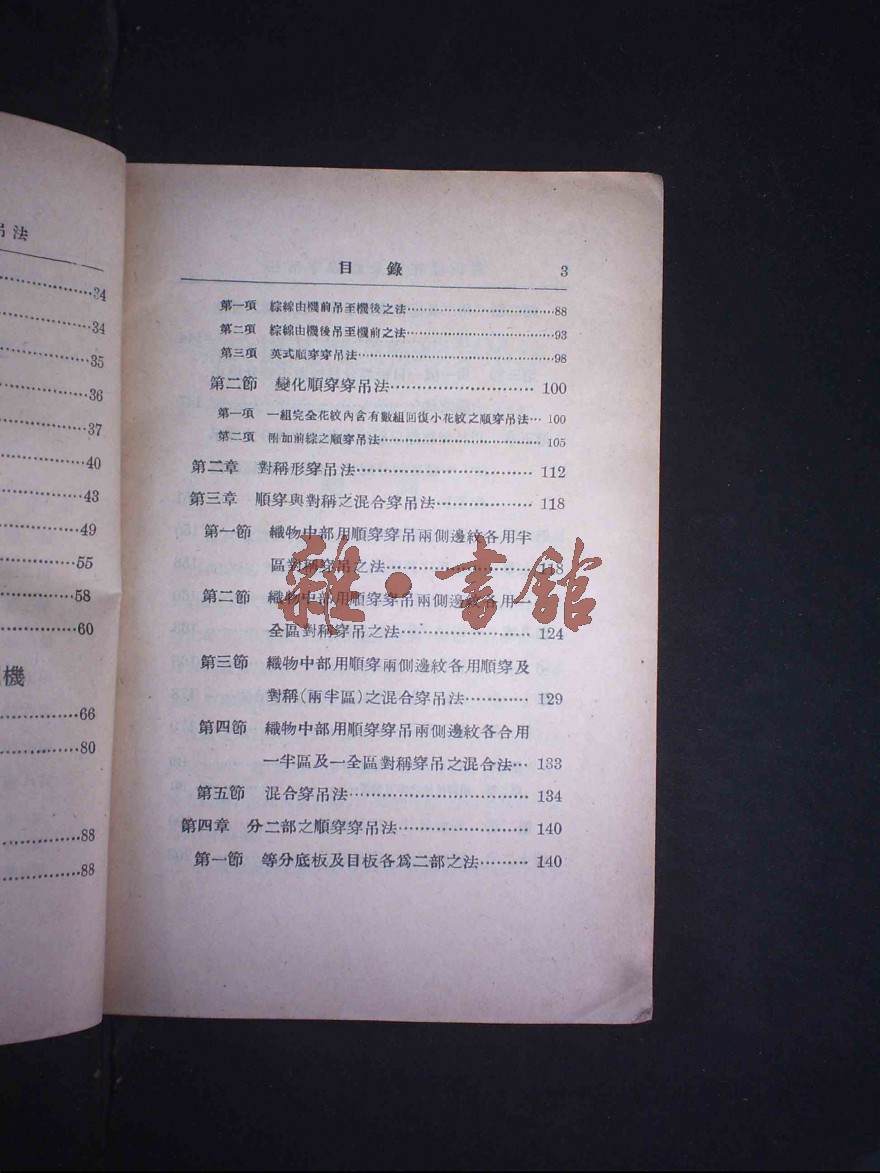 吊法
34
34
35
36
37
40
43
49
55
58
60
機
66
80
88
88
目錄 3
第一項 綜線由機前吊至機後之法 88
第二項 綜線由機後吊至機前之法 93
第三項 英式順穿穿吊法 98
第二節 變化順穿穿吊法 100
第一項 一組完全花紋內含有數組回復小花紋之順穿吊法 100
第二項 附加前綜之順穿吊法 105
第二章 對稱形穿吊法 112
第三章 順穿與對稱之混合穿吊法 118
第一節 織物中部用順穿穿吊兩側邊紋各用半
區對稱穿吊之法 118
第二節 織物中部用順穿穿吊兩側邊紋各用一
全區對稱穿吊之法 124
第三節 織物中部用順穿兩側邊紋各用順穿及
對稱(兩半區)之混合穿吊法 129
第四節 織物中部用順穿穿吊兩側邊紋各合用
一半區及一全區對稱穿吊之混合法 133
第五節 混合穿吊法 134
第四章 分二部之順穿穿吊法 140
第一節 等分底板及目板各爲二部之法 140
雜·書館